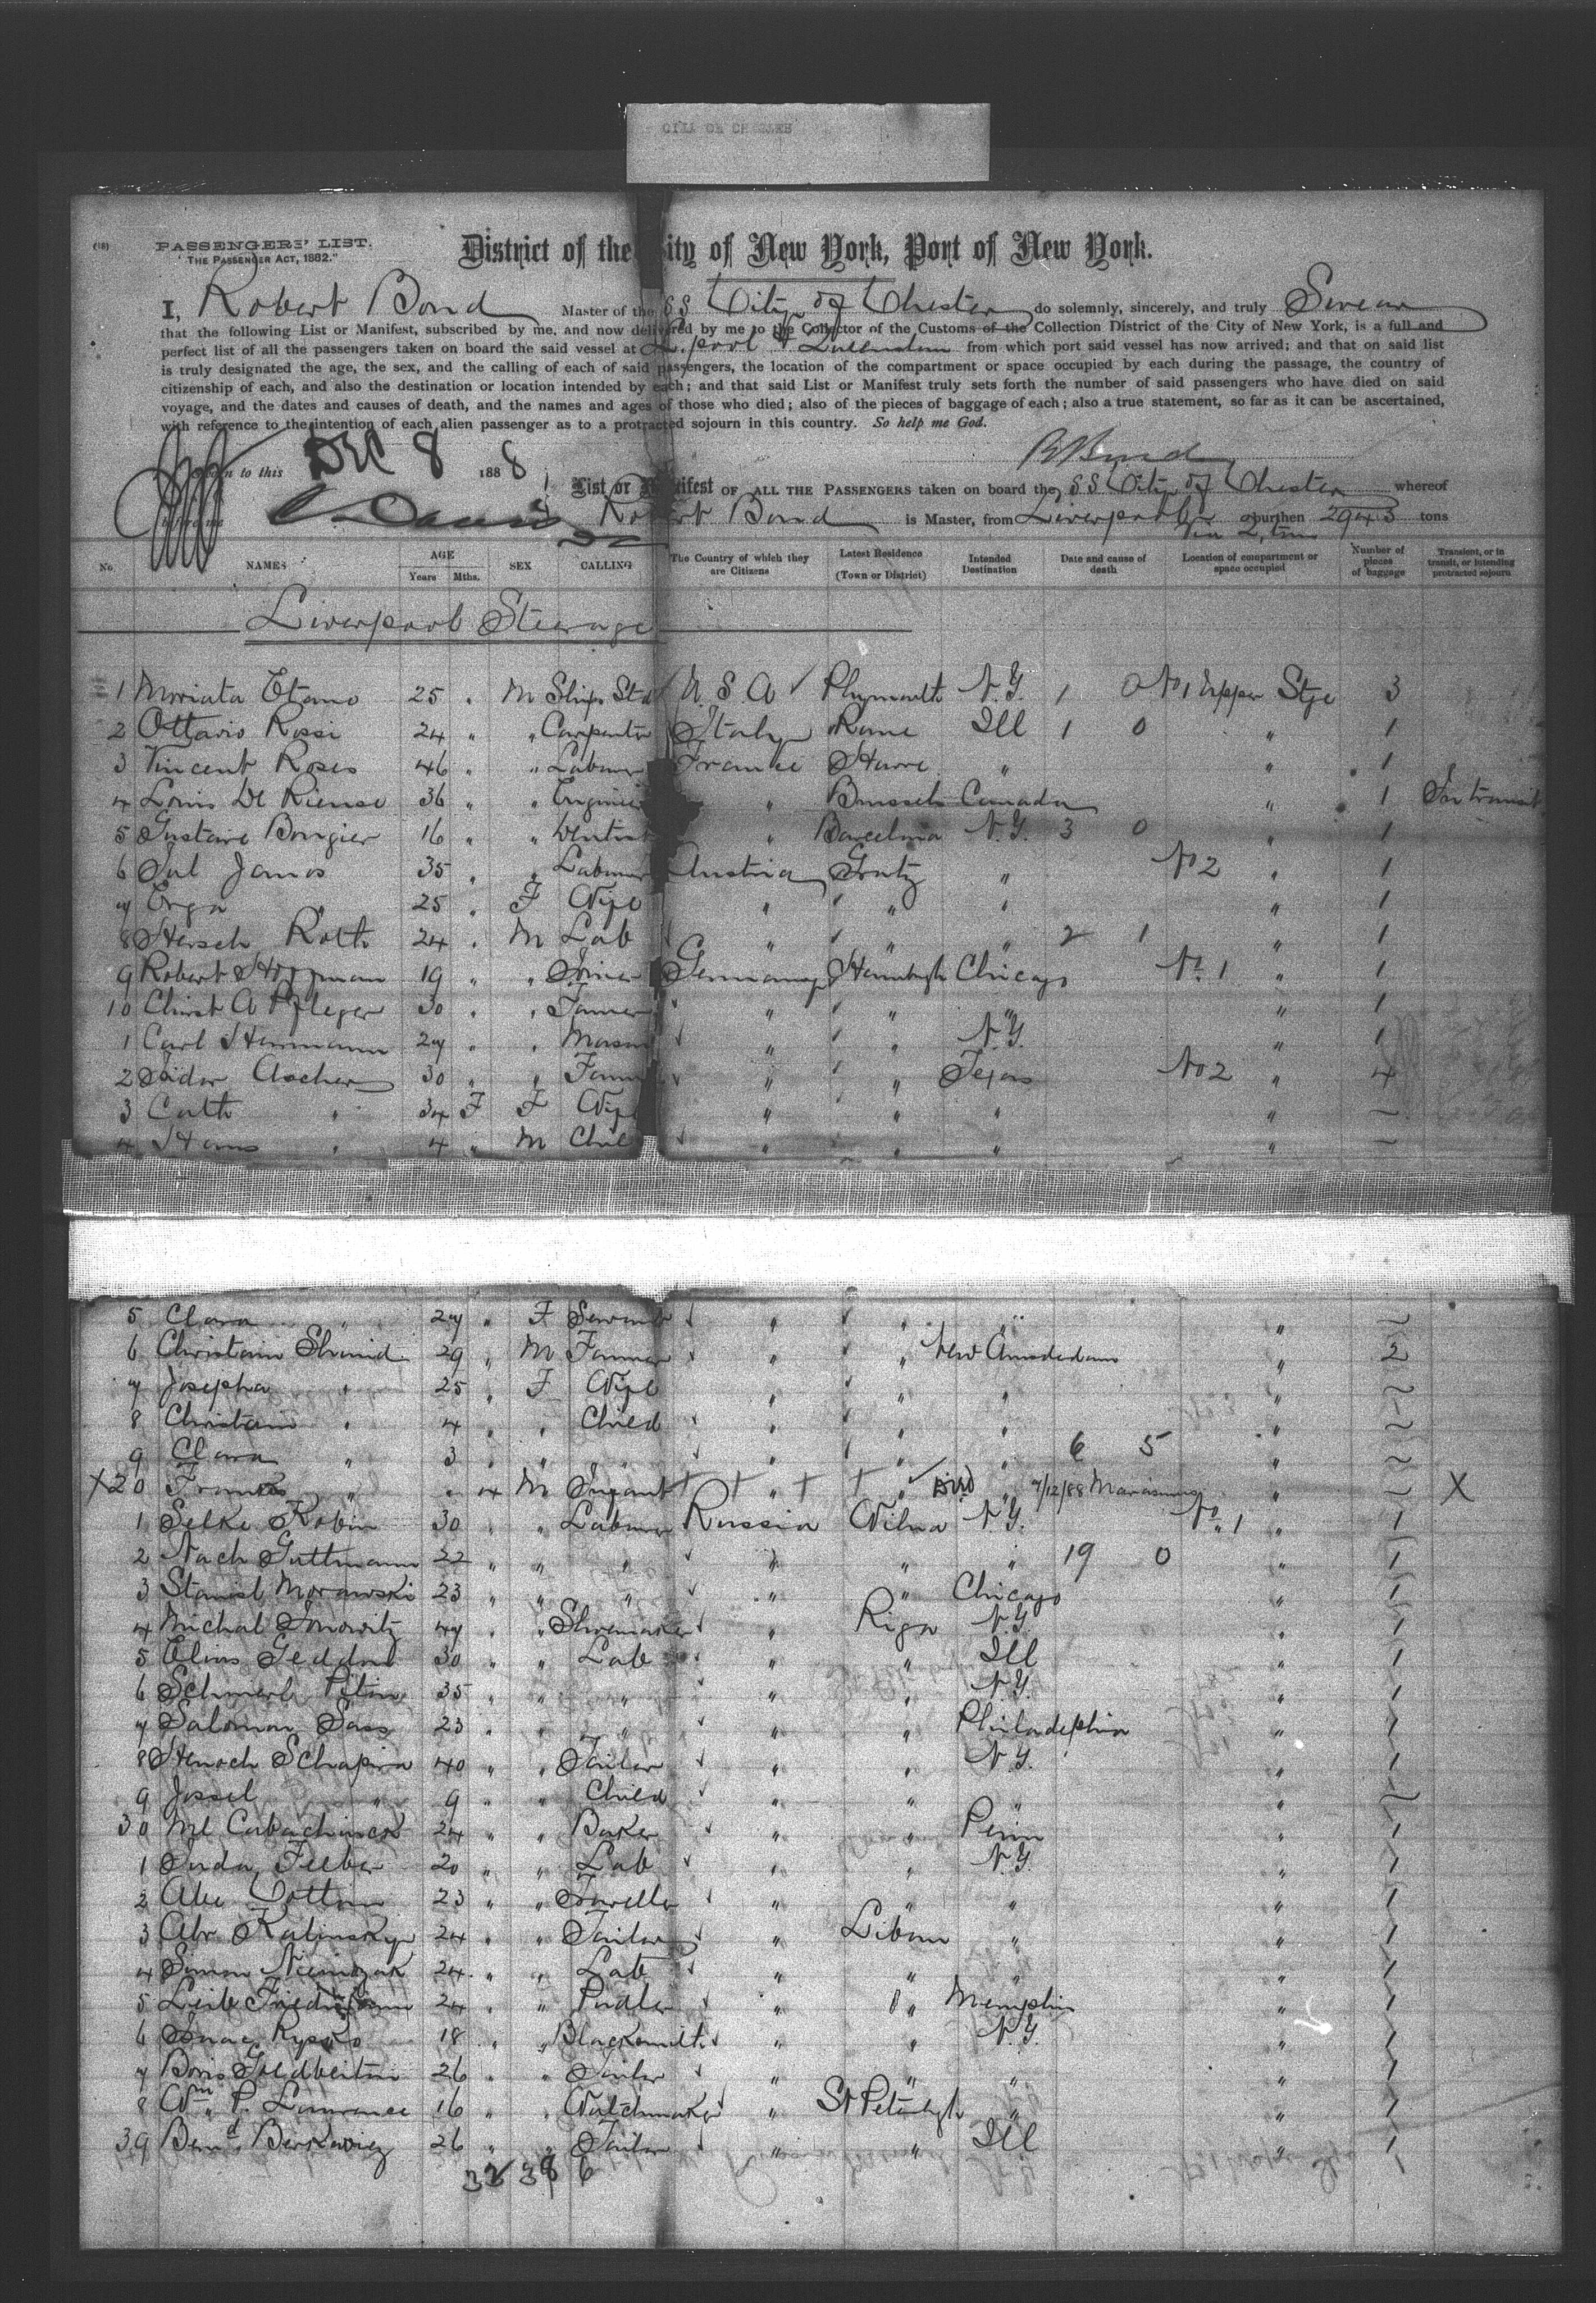 CITY OF CHESTER
(18) PASSENGERS' LIST.
"THE PASSENGER ACT, 1882."
District of the City of New York, Port of New York.
I, Robert Bond Master of the SS City of Chester do solemnly, sincerely, and truly Swear
that the following List or Manifest, subscribed by me, and now delivered by me to the Collector of the Customs of the Collection District of the City of New York, is a full and
perfect list of all the passengers taken on board the said vessel at L'pool & Queenstown from which port said vessel has now arrived; and that on said list
is truly designated the age, the sex, and the calling of each of said passengers, the location of the compartment or space occupied by each during the passage, the country of
citizenship of each, and also the destination or location intended by each; and that said List or Manifest truly sets forth the number of said passengers who have died on said
voyage, and the dates and causes of death, and the names and ages of those who died; also of the pieces of baggage of each; also a true statement, so far as it can be ascertained,
with reference to the intention of each alien passenger as to a protracted sojourn in this country. So help me God.
R Bond
Sworn to this DEC 8 1888
before me
List or Manifest OF ALL THE PASSENGERS taken on board the SS City of Chester whereof
Robert Bond is Master, from Liverpool burthen 2943 tons
No. NAMES AGE Years Mths. SEX CALLING The Country of which they are Citizens Latest Residence (Town or District) Intended Destination Date and cause of death Location of compartment or space occupied Number of pieces of baggage Transient, or in transit, or intending protracted sojourn
Liverpool Steerage
1 25 " M Ships Std U.S.A Plymouth N.Y. 1 0 No 1 Upper Stge 3
2 Ottavio Rossi 24 " " Carpenter Italy Rome Ill 1 0 " 1
3 Vincent Roses 46 " " Labourer France Havre " " 1
4 Louis De Riense 36 " " Engineer " Brussels Canada " 1 In transit
5 Gustave Bongier 16 " " Dentist " Barcelona N.Y. 3 0 " 1
6 Janos 35 " " Labourer Austria Gratz " No 2 " 1
7 " 25 " F Wife " " " " 1
8 Hersch Roth 24 " M Lab " " " 2 1 " 1
9 Robert Hoffman 19 " " Joiner Germany Hamburgh Chicago No 1 " 1
10 Christ A Pfleger 30 " " Farmer " " " " 1
1 Carl Hermann 27 " " Mason " " N.Y. " 1
2 Isidor Ascher 30 " " Farmer " " Texas No 2 " 4
3 Cath " 34 F F Wife " " " " ~
4 Hans " 4 " M Child " " " " ~
5 Clara " 27 " F Servant " " " " ~
6 Christain Shmid 29 " M Farmer " " New Amsdedam " 2
7 Josepha " 25 " F Wife " " " " ~
8 Christain " 4 " " Child " " " " ~
9 Clara " 3 " " " " " " 6 5 " ~
X20 " " 4 M Infant + + " + + " Died " 7/12/88 Marasmus " ~ X
1 Selke Robin 30 " " Labourer Russia Wilna N.Y. No 1 " 1
2 Nach Guttmann 22 " " " " " " 19 0 " 1
3 Stanisl Morawski 23 " " " " " Chicago " 1
4 Michal 47 " " Shoemaker " Riga N.Y. " 1
5 Elias 30 " " Lab " " Ill " 1
6 Schmerl 35 " " " " " N.Y. " 1
7 Saloman Sass 23 " " " " " Philadephia " 1
8 Henoch Schapira 40 " " Tailor " " N.Y. " 1
9 Jossel " 9 " " Child " " " " ~
30 24 " " Baker " " Penn " 1
1 Juda Feeber 20 " " Lab " " N.Y. " 1
2 Abe 23 " " Jeweller " " " " 1
3 Abr Kalinsky 24 " " Tailor " Libau " " 1
4 Simon 24 " " Lab " " " " 1
5 Leib 24 " " Pedler " " Memphis " 1
6 Isaac Rypko 18 " " Blacksmith " " N.Y. " 1
7 Boris Goldbertin 26 " " Tailor " " " " 1
8 Wm P. Lawrance 16 " " Watchmaker " St Petersbgh " " 1
39 Bernd Berkowicz 26 " " Tailor " " Ill " 1